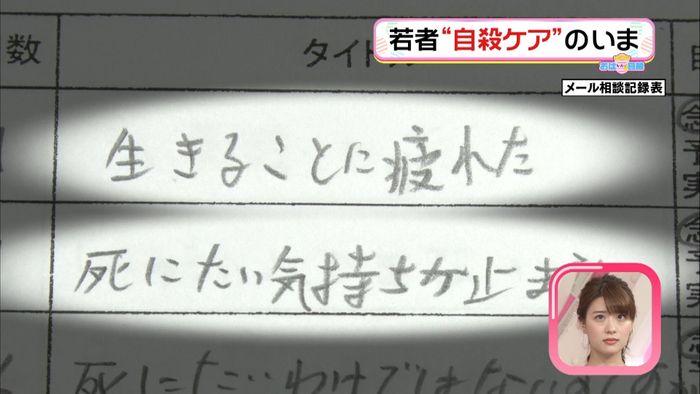 若者“自殺ケア”のいま
メール相談記録表
数
タイトル
生きることに疲れた
死にたい気持ちが止ま
死にたいわけではない